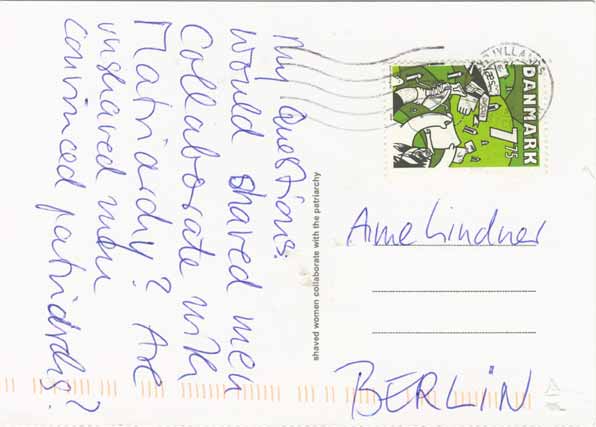 My Questions:
would shaved men
collaborate with
Matriarchy? Are
unshaved men
convinced patriarchs?
shaved women collaborate with the patriarchy
DANMARK
7 75
Arne Lindner
BERLIN